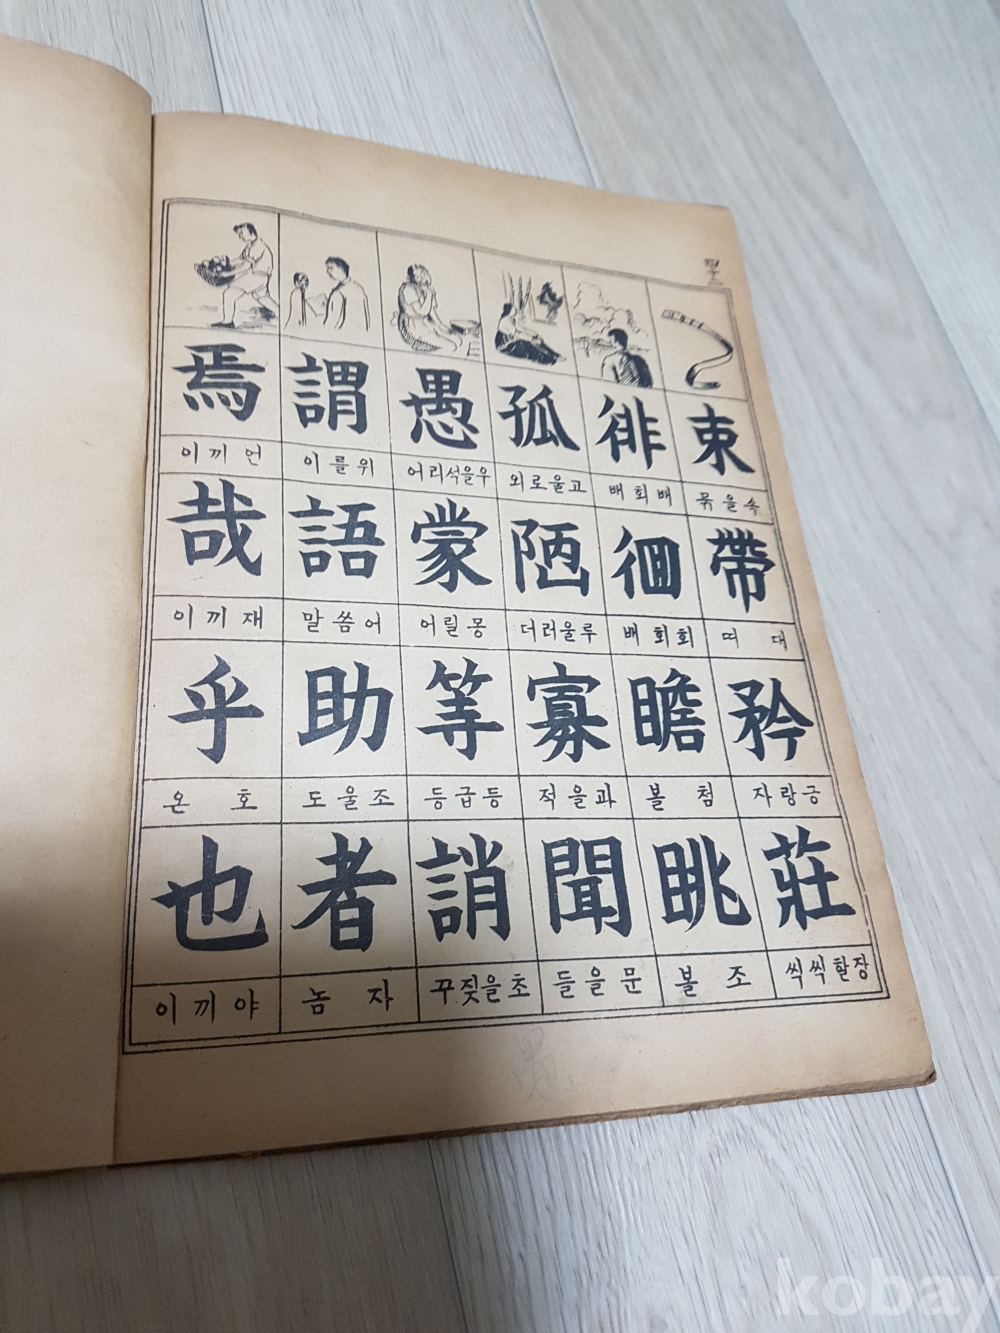 束
묶을속
帶
띠 대
矜
자랑긍
莊
씩씩할장
徘
배회배
徊
배회회
瞻
볼 첨
眺
볼 조
孤
외로울고
陋
더러울루
寡
적을과
聞
들을문
愚
어리석을우
蒙
어릴몽
等
등급등
誚
꾸짖을초
謂
이를위
語
말씀어
助
도울조
者
놈 자
焉
이끼언
哉
이끼재
乎
온 호
也
이끼야
kobay